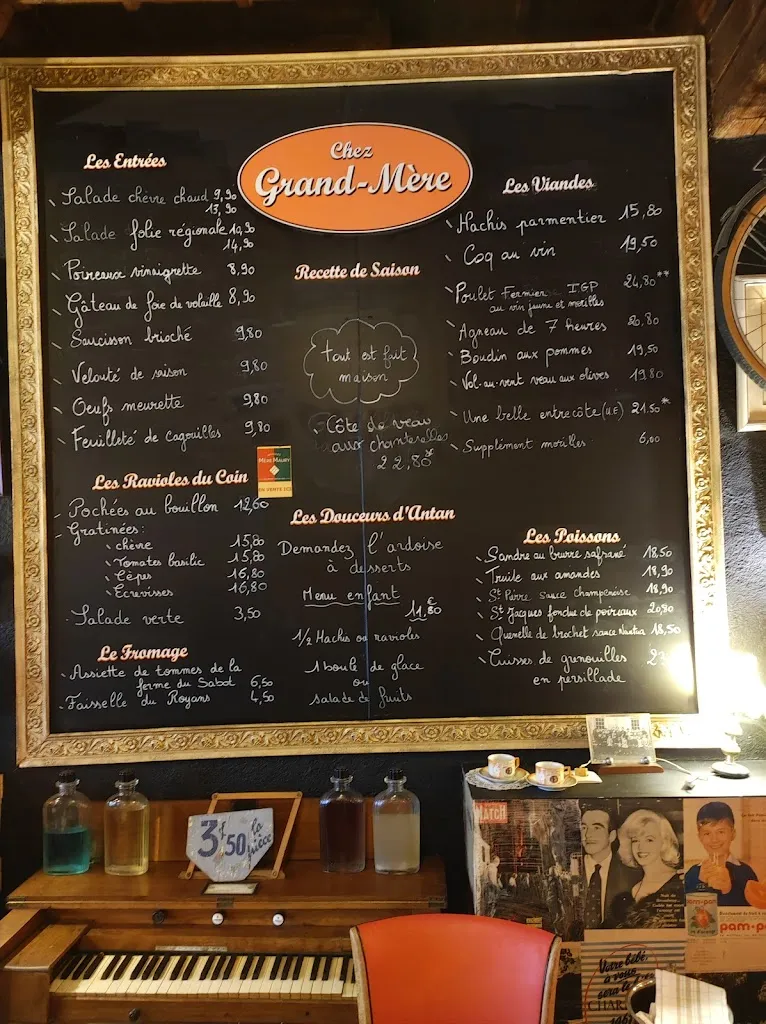 Chez
Grand-Mère
Les Entrées
Salade chèvre chaud 9,90
13,90
Salade folie régionale 10,90
14,90
Poireaux vinaigrette 8,90
Gâteau de foie de volaille 8,90
Saucisson brioché 9,80
Velouté de saison 9,80
Oeufs meurette 9,80
Feuilleté de cagouilles 9,80
Les Ravioles du Coin
MÈRE MAURY
EN VENTE ICI
Pochées au bouillon 12,60
Gratinées:
chèvre 15,80
Tomates basilic 15,80
Cèpes 16,80
Ecrevisses 16,80
Salade verte 3,50
Le Fromage
Assiette de tommes de la
ferme du Sabot 6,50
Faisselle du Royans 4,50
Recette de Saison
tout est fait
maison
Côte de veau
aux chanterelles
22,80*
Les Douceurs d'Antan
Demandez l'ardoise
à desserts
Menu enfant
11,80€
1/2 Hachis ou ravioles
1 boule de glace
ou
salade de fruits
Les Viandes
Hachis parmentier 15,80
Coq au vin 19,50
Poulet Fermier IGP 24,80**
au vin jaune et morilles
Agneau de 7 heures 20,80
Boudin aux pommes 19,50
Vol-au-vent veau aux olives 19,80
Une belle entrecôte (UE) 21,50*
Supplément morilles 6,00
Les Poissons
Sandre au beurre safrané 18,50
Truite aux amandes 18,90
St Pierre sauce champenoise 18,90
St Jacques fondue de poireaux 20,80
Quenelle de brochet sauce Nantua 18,50
Cuisses de grenouilles
en persillade
3F50 la
pièce
MATCH
pam-pam
pam-pa
Votre bébé
a vous
sera le
CHAR